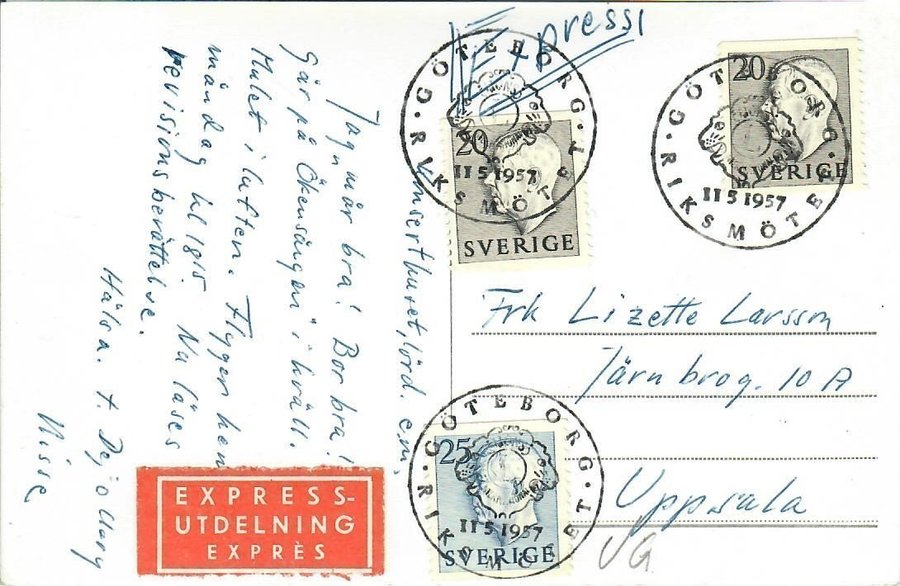 Express!
Konserthuset, lörd. em.
Jag mår bra! Bor bra!
Går på "Ökensången" i kväll.
Mulet i luften. Flyger hem
måndag kl 1815. Nu läses
revisionsberättelse.
Hälsn. t. Dej o
Nisse
EXPRESS-
UTDELNING
EXPRÈS
GÖTEBORG
20
11 5 1957
RIKSMÖTET
SVERIGE
GÖTEBORG
20
SVERIGE
11 5 1957
RIKSMÖTET
Frk Lizette Larsson
Järnbrog. 10 A
Uppsala
VG
GÖTEBORG
25
11 5 1957
RIKSMÖTET
SVERIGE